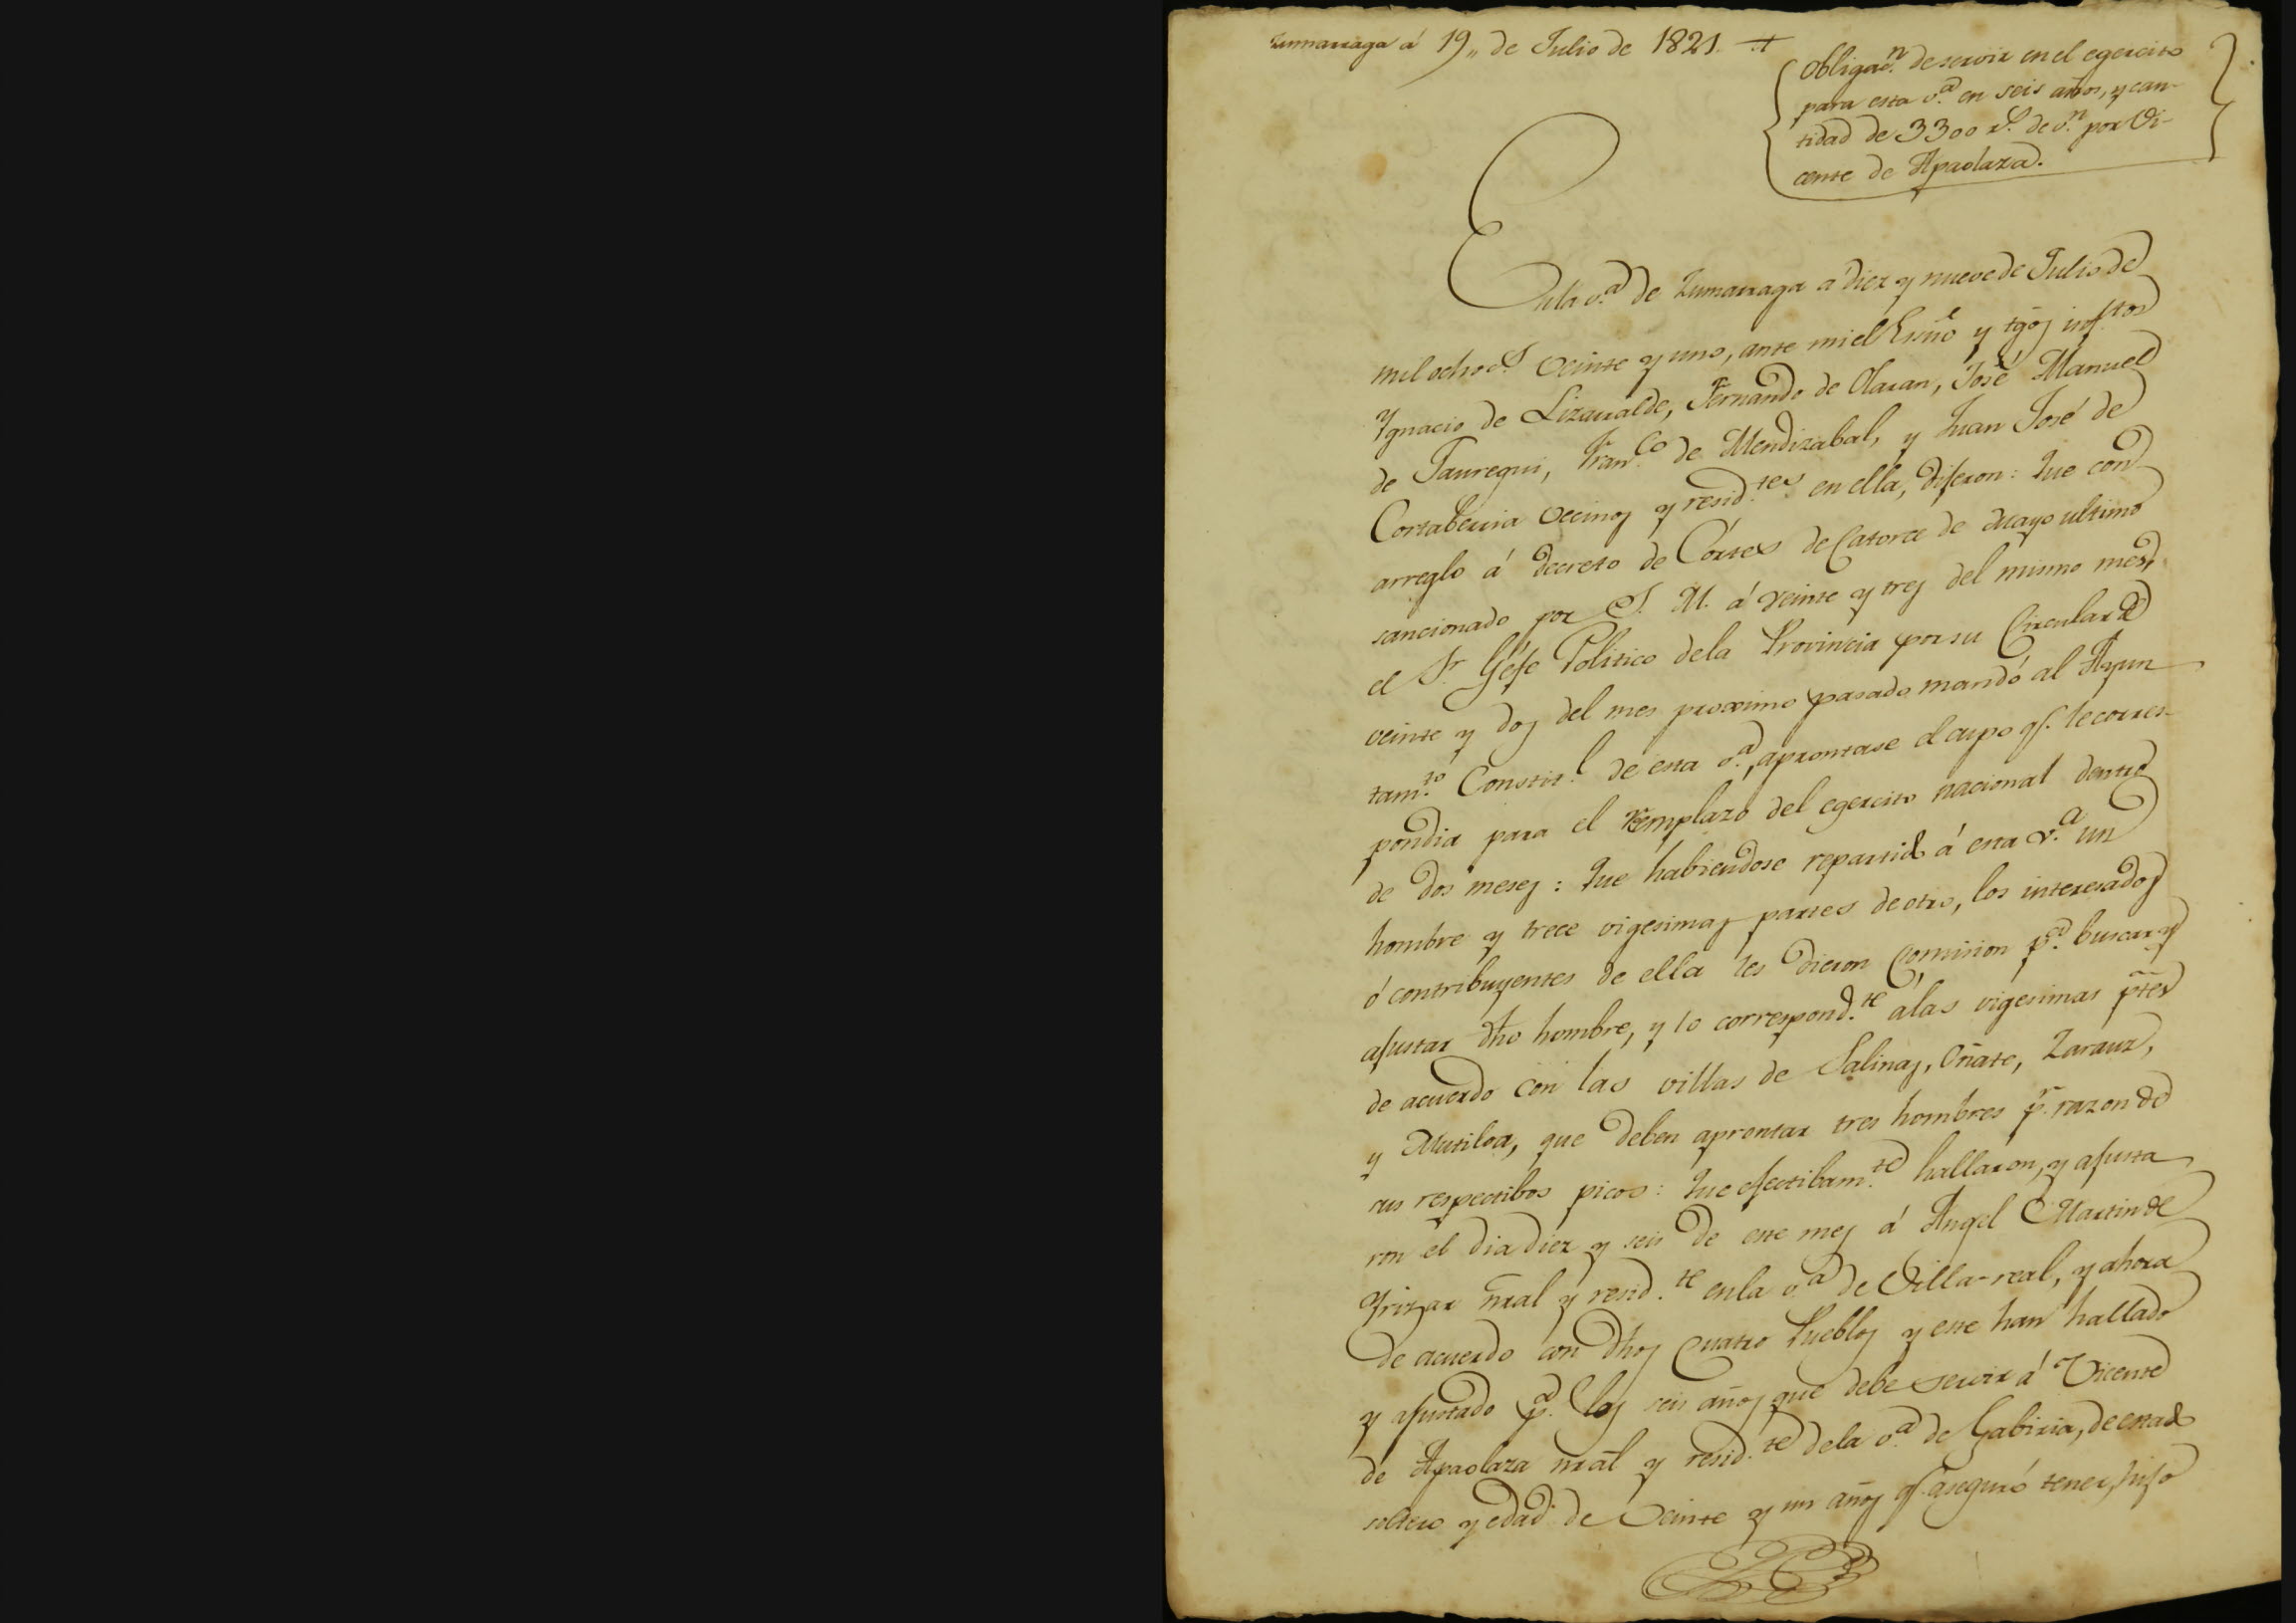 Zumarraga á 19,, de Julio de 1821
Obligaon. de servir en el egercito
para esta v.a en seis años, y can-
tidad de 3300 r.s de v.n por Vi-
cente de Apaolaza.
En la v.a de Zumarraga á diez y nueve de Julio de
mil ochoc.s veinte y uno, ante mi el Essno y tgos infrtos
Ygnacio de Lizarralde, Fernando de Olaran, José Manuel
de Jauregui, Fran.co de Mendizabal, y Juan José de
Cortaberria vecinos y resid.tes en ella, dijeron: Que con
arreglo á decreto de Córtes de Catorce de Mayo ultimo
sancionado por S. M. á veinte y tres del mismo mes,
el S.r Géfe Politico dela Provincia por su Circular de
veinte y dos del mes proximo pasado mandó al Ayun
tam.to Constit.l de esta v.a, aprontase el cupo q.e le corres-
pondia para el remplazo del egercito nacional dentro
de dos meses: Que habiendose repartido á esta v.a un
hombre y trece vigesimas partes de otro, los interesados
ó contribuyentes de ella les dieron Comision p.a buscar y
ajustar dho hombre, y lo correspond.te álas vigesimas ptes
de acuerdo con las villas de Salinas, Oñate, Zarauz,
y Mutiloa, que deben aprontar tres hombres p.r razon de
sus respectibos picos: Que efectibam.te hallaron, y ajusta
ron el dia diez y seis de este mes á Angel Martin de
Yrizar nral y resid.te en la v.a de Villa-real, y ahora
de acuerdo con dhos Cuatro Pueblos y este han hallado
y ajustado p.a los seis años que debe servir á Vicente
de Apaolaza nral y resid.te dela v.a de Gabiria, de estado
soltero y edad de Veinte y un años q.e aseguró tener, hijo